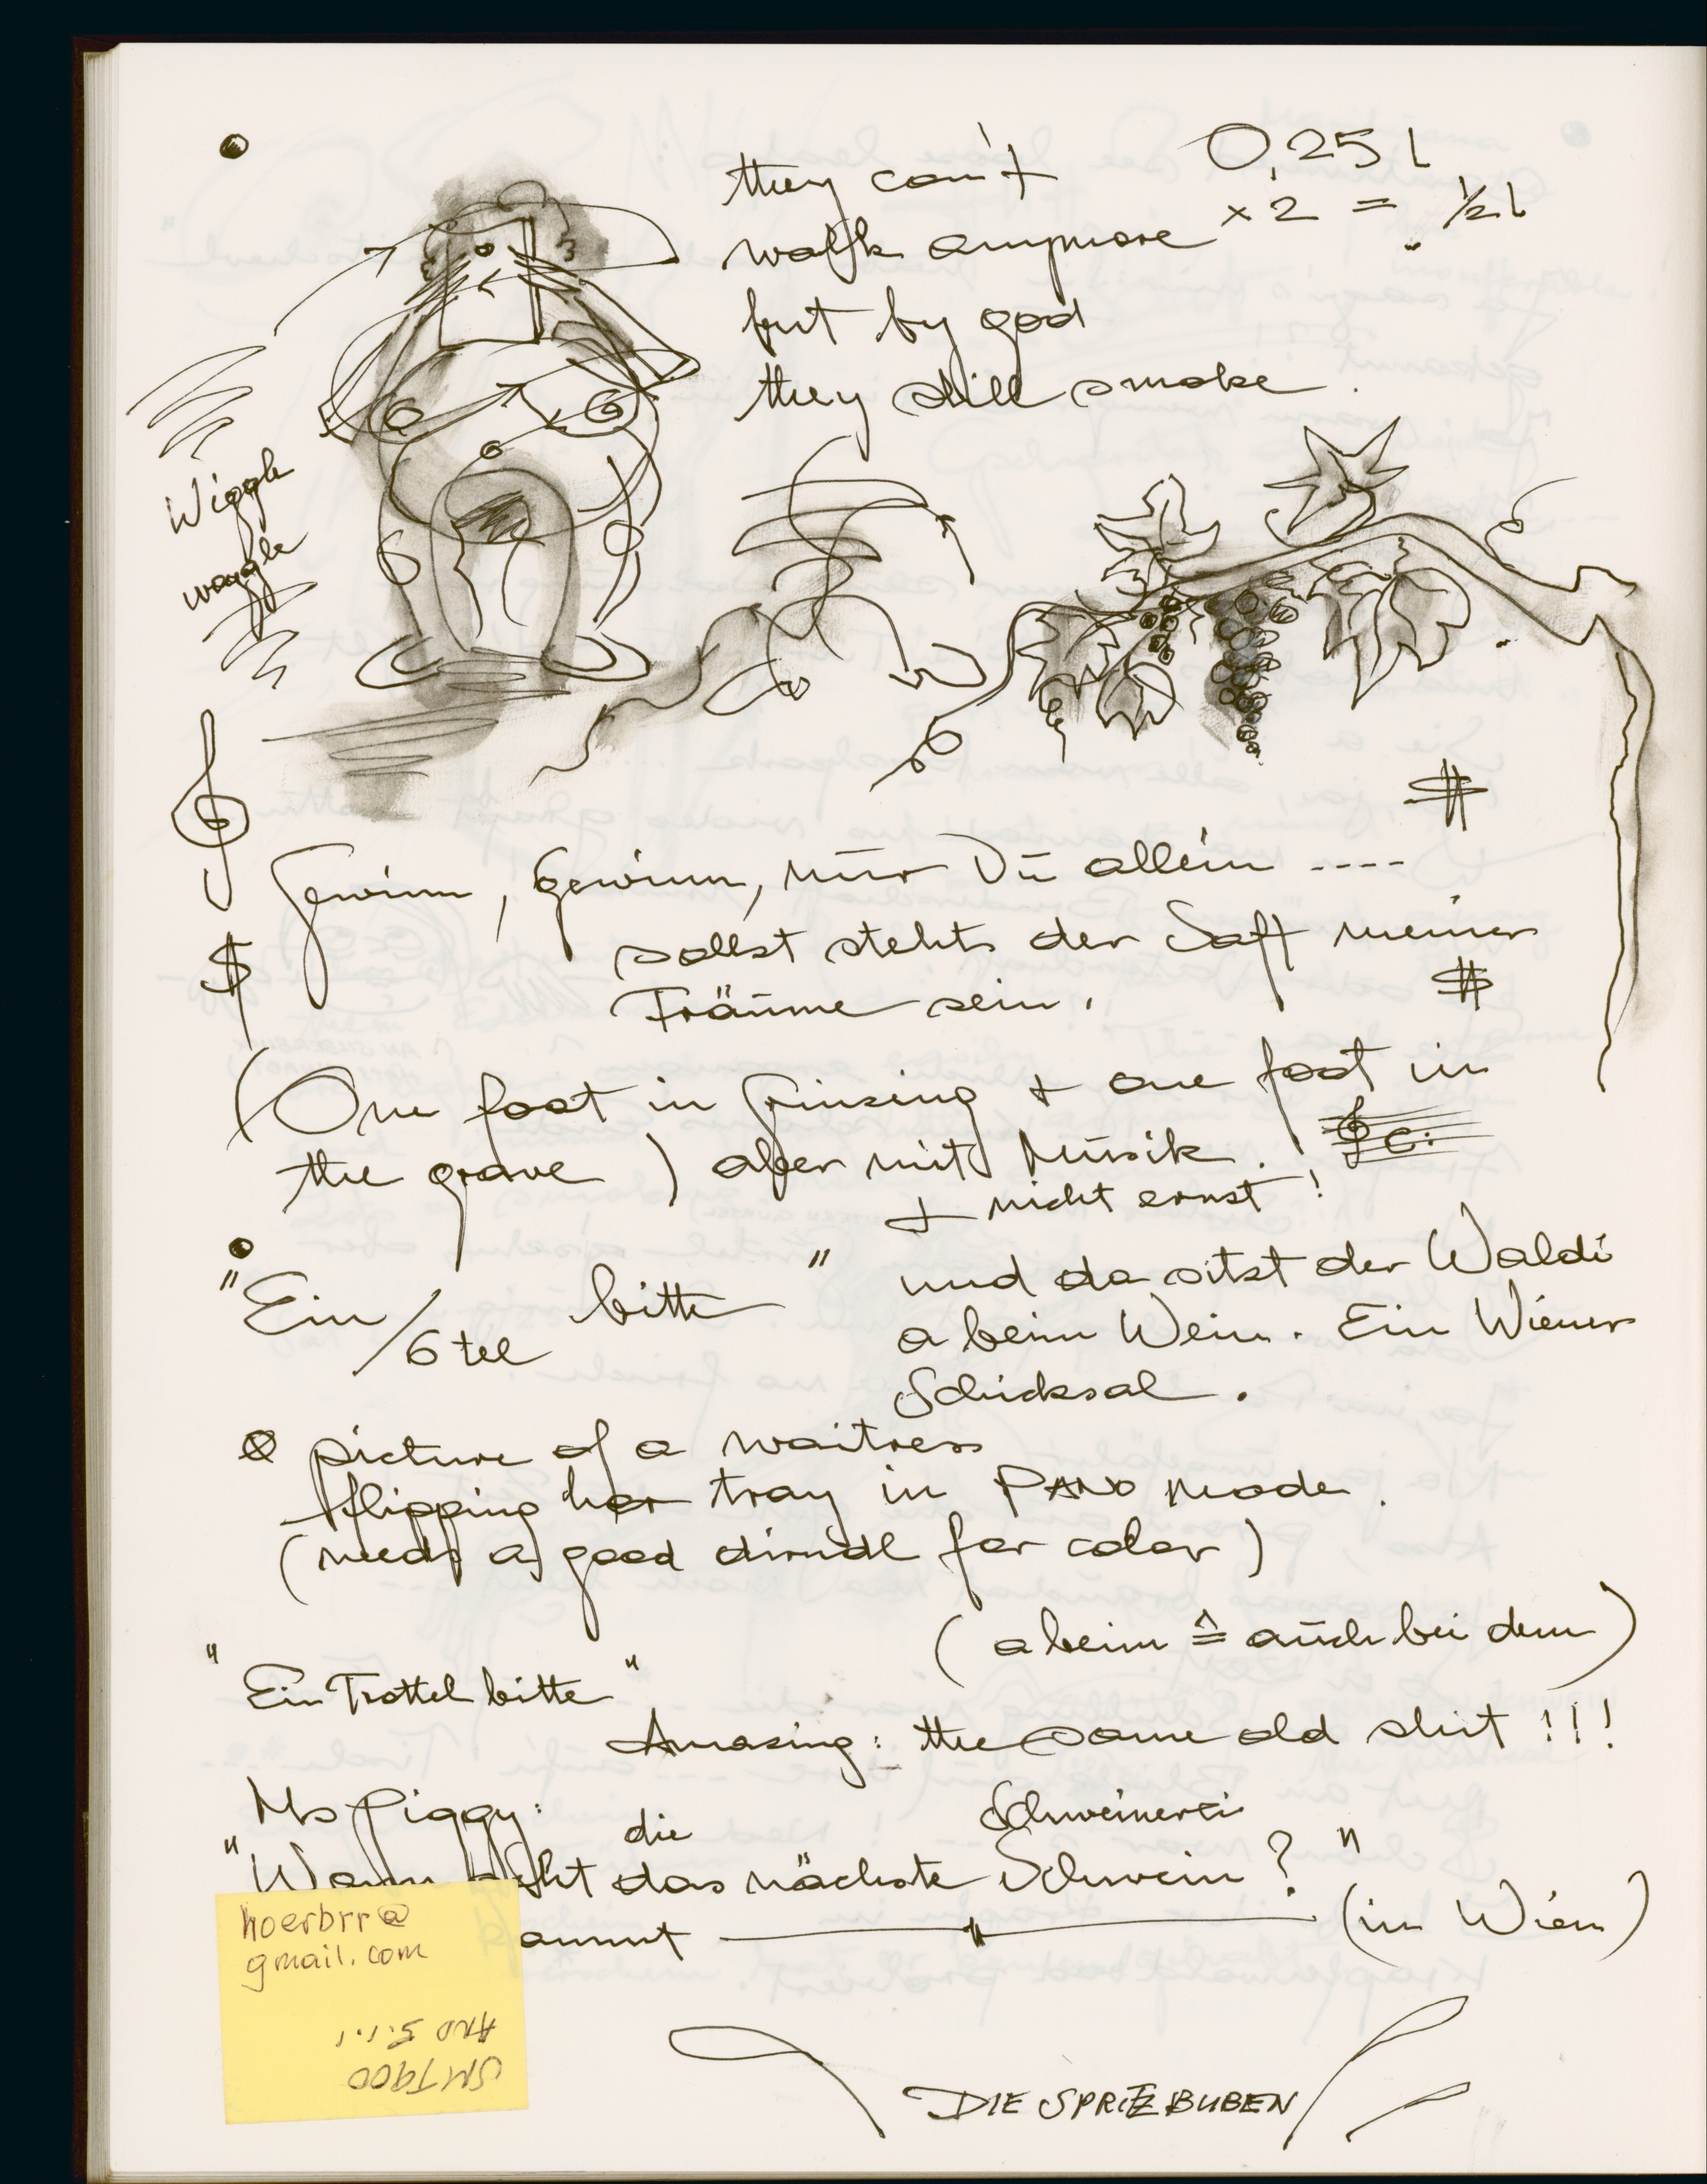 they can't
walk anymore
but by god
they still smoke.
0,25 l
x 2 = ½ l
Wiggle
waggle
$
Gewinn, Gewinn, nūr Dū allein ----
sollst stehts der Saft meiner
Träūme sein,
$
$
(One foot in Grinzing + one foot in
the grave) aber mit Mūsik.!
+ nicht ernst!
"Ein /6 tel bitte"
und da sitzt der Waldi
a beim Wein. Ein Wiener
Schicksal.
picture of a waitress
flipping her tray in PANO mode.
(needs a good dirndl for color)
(a beim ≙ aūch bei dem)
"Ein Trottel bitte"
Amazing: the same old shit !!!
Ms Piggy:
die Schweinerei
"Wann geht das nächste Schwein?"
kommt — " — (in Wien)
hoerbrr@
gmail.com
SMT900
AND 5.1.1
DIE SPRITZBUBEN